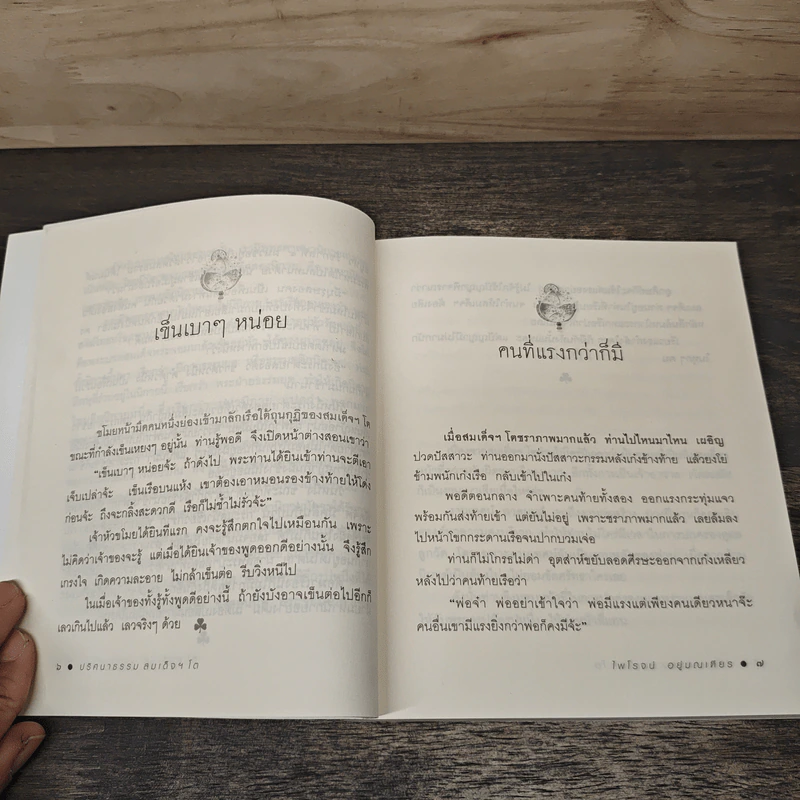 เข็นเบาๆ หน่อย
ขโมยหน้ามืดคนหนึ่งย่องเข้ามาลักเรือใต้ถุนกุฏิของสมเด็จฯ โต
ขณะที่กำลังเข็นเหยงๆ อยู่นั้น ท่านรู้พอดี จึงเปิดหน้าต่างสอนเขาว่า
“เข็นเบาๆ หน่อยจ้ะ ถ้าดังไป พระท่านได้ยินเข้าท่านจะตีเอา
เจ็บเปล่าจ้ะ เข็นเรือบนแห้ง เขาต้องเอาหมอนรองข้างท้ายให้โด่ง
ก่อนจ้ะ ถึงจะกลิ้งสะดวกดี เรือก็ไม่ช้ำไม่รั่วจ้ะ”
เจ้าหัวขโมยได้ยินทีแรก คงจะรู้สึกตกใจไปเหมือนกัน เพราะ
ไม่คิดว่าเจ้าของจะรู้ แต่เมื่อได้ยินเจ้าของพูดออกดีอย่างนั้น จึงรู้สึก
เกรงใจ เกิดความละอาย ไม่กล้าเข็นต่อ รีบวิ่งหนีไป
ในเมื่อเจ้าของทั้งรู้ทั้งพูดดีอย่างนี้ ถ้ายังบังอาจเข็นต่อไปอีกก็
เลวเกินไปแล้ว เลวจริงๆ ด้วย
๖ ● ปริศนาธรรม สมเด็จฯ โต
คนที่แรงกว่าก็มี
เมื่อสมเด็จฯ โตชราภาพมากแล้ว ท่านไปไหนมาไหน เผอิญ
ปวดปัสสาวะ ท่านออกมานั่งปัสสาวะกรรมหลังเก๋งข้างท้าย แล้วยงโย่
ข้ามพนักเก๋งเรือ กลับเข้าไปในเก๋ง
พอดีตอนกลาง จำเพาะคนท้ายทั้งสอง ออกแรงกระทุ่มแจว
พร้อมกันส่งท้ายเข้า แต่ยันไม่อยู่ เพราะชราภาพมากแล้ว เลยล้มลง
ไปหน้าโขกกระดานเรือจนปากบวมเจ่อ
ท่านก็ไม่โกรธไม่ด่า อุตส่าห์ขยับลอดศีรษะออกจากเก๋งเหลียว
หลังไปว่าคนท้ายเรือว่า
“พ่อจ๋า พ่ออย่าเข้าใจว่า พ่อมีแรงแต่เพียงคนเดียวหนาจ๊ะ
คนอื่นเขามีแรงยิ่งกว่าพ่อก็คงมีจ้ะ”
ไพโรจน์ อยู่มณเฑียร ● ๗